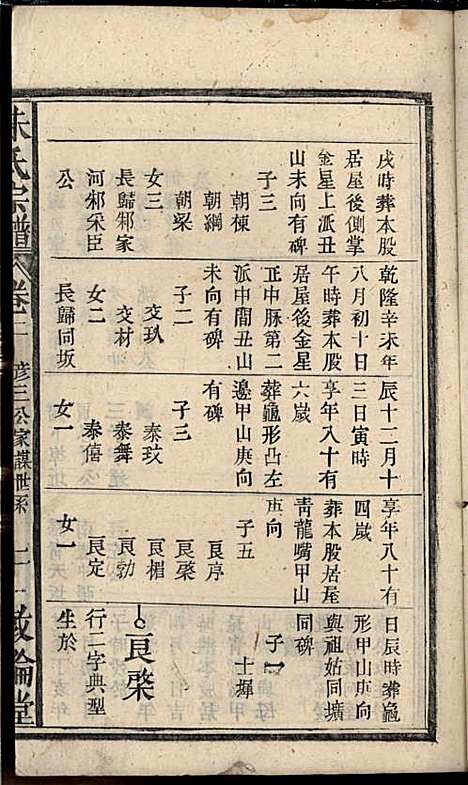 戌時葬本股
居屋後側掌
金星上派丑
山未向有碑
子三
朝棟
朝綱
朝樑
女三
長歸邾家
河邾采臣
公
乾隆辛未年
八月初十日
午時葬本股
居屋後金星
正中脉第二
派中間丑山
未向有碑
子二
交玖
交材
女二
長歸同坂
辰十二月十
三日寅時
享年八十有
六嵗
葬龜形凸左
邉甲山庚向
有碑
子三
泰玟
泰舞
泰僖
女一
享年八十有
四嵗
葬本股居屋
靑龍嘴甲山
庚向
子五
艮序
艮棨
艮楣
艮勃
艮定
女一
日辰時葬龜
形甲山庚向
與祖姑同壙
同碑
子一
士揮
艮棨
行二字典型
生於
朱氏宗譜
卷二
彦三公家謀世系
敦倫堂